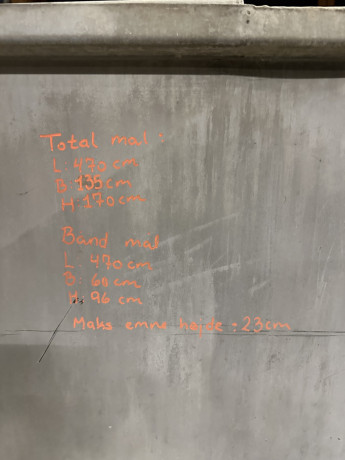 Total mal:
L: 470 cm
B: 135 cm
H: 170 cm
Band mal
L: 470 cm
B: 60 cm
H: 96 cm
Maks emne højde = 23cm